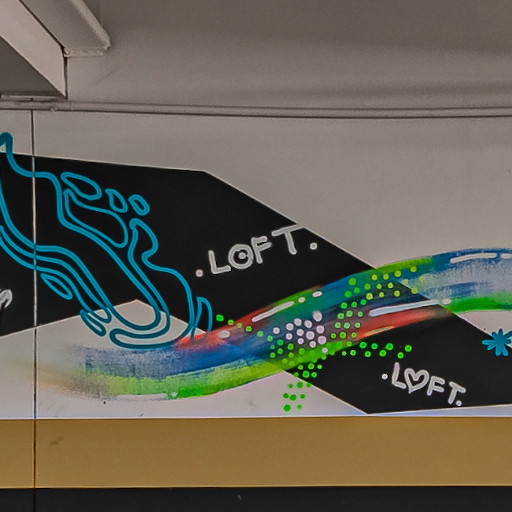 .LOFT.
.L♡FT.